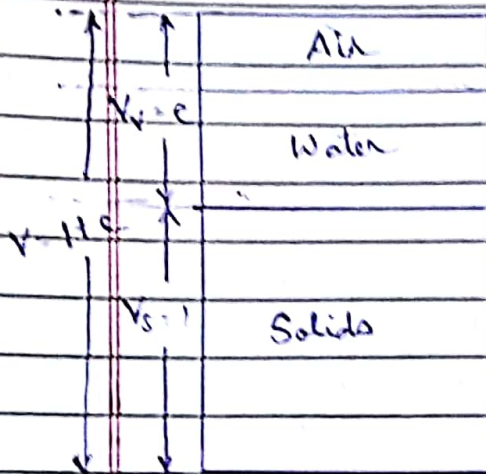 Air
Vv = e
Water
V = 1+e
Vs = 1
Solids